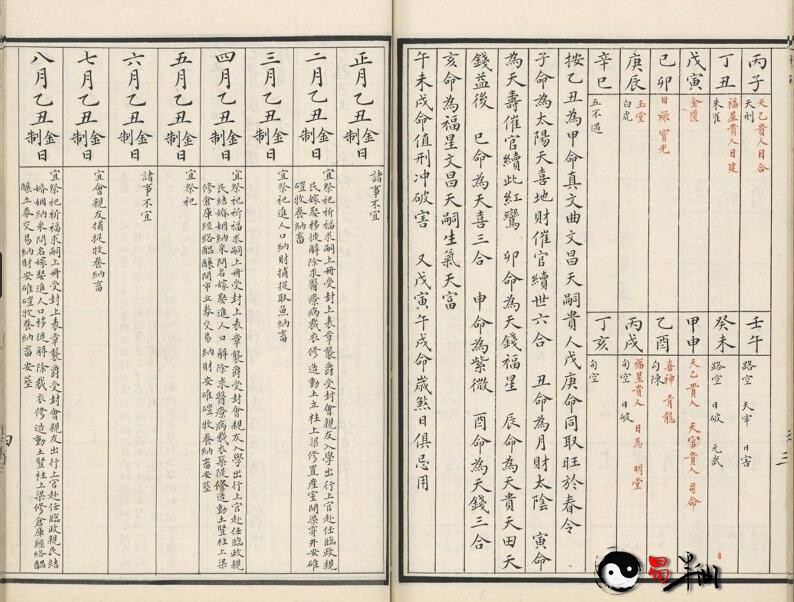 丙子 天乙貴人日合
天刑
丁丑 福星貴人日建
朱雀
戊寅 金匱
己卯 日祿寶光
庚辰 玉堂
白虎
辛巳 五不遇
壬午 路空 天牢 日害
癸未 路空 日破 元武
甲申 天乙貴人 天官貴人 司命
乙酉 喜神 青龍
勾陳
丙戌 福星貴人 日馬 明堂
旬空
丁亥 旬空
按乙丑為甲命真文曲文昌天嗣貴人戊庚命同取旺於春令
子命為太陽天喜地財催官續世六合 丑命為月財太陰 寅命
為天壽催官續此紅鸞 卯命為天錢福星 辰命為天貴天田天
錢益後 巳命為天喜三合 申命為紫微 酉命為天錢三合
亥命為福星文昌天嗣生氣天富
午未戌命值刑冲破害 又戊寅午戌命歲煞日俱忌用
正月乙丑 金制日
諸事不宜
二月乙丑 金制日
宜祭祀祈福求嗣上冊受封上表章襲爵受封會親友入學出行上官赴任臨政親
民嫁娶移徙解除求醫療病裁衣修造動土立柱上梁修置產室開渠穿井安碓
磑牧養納畜
三月乙丑 金制日
宜祭祀進人口納財捕捉取魚納畜
四月乙丑 金制日
宜祭祀祈福求嗣上冊受封上表章襲爵受封會親友入學出行上官赴任臨政親
民結婚姻納采問名嫁娶進人口解除求醫療病裁衣築隄修造動土豎柱上梁
修倉庫經絡醞釀開市立券交易納財安碓磑牧養納畜安葬
五月乙丑 金制日
宜祭祀
六月乙丑 金制日
諸事不宜
七月乙丑 金制日
宜會親友捕捉牧養納畜
八月乙丑 金制日
宜祭祀祈福求嗣上冊受封上表章襲爵受封會親友出行上官赴任臨政親民結
婚姻納采問名嫁娶進人口移徙解除裁衣修造動土豎柱上梁修倉庫經絡醞
釀立券交易納財安碓磑牧養納畜安葬
三
易半仙